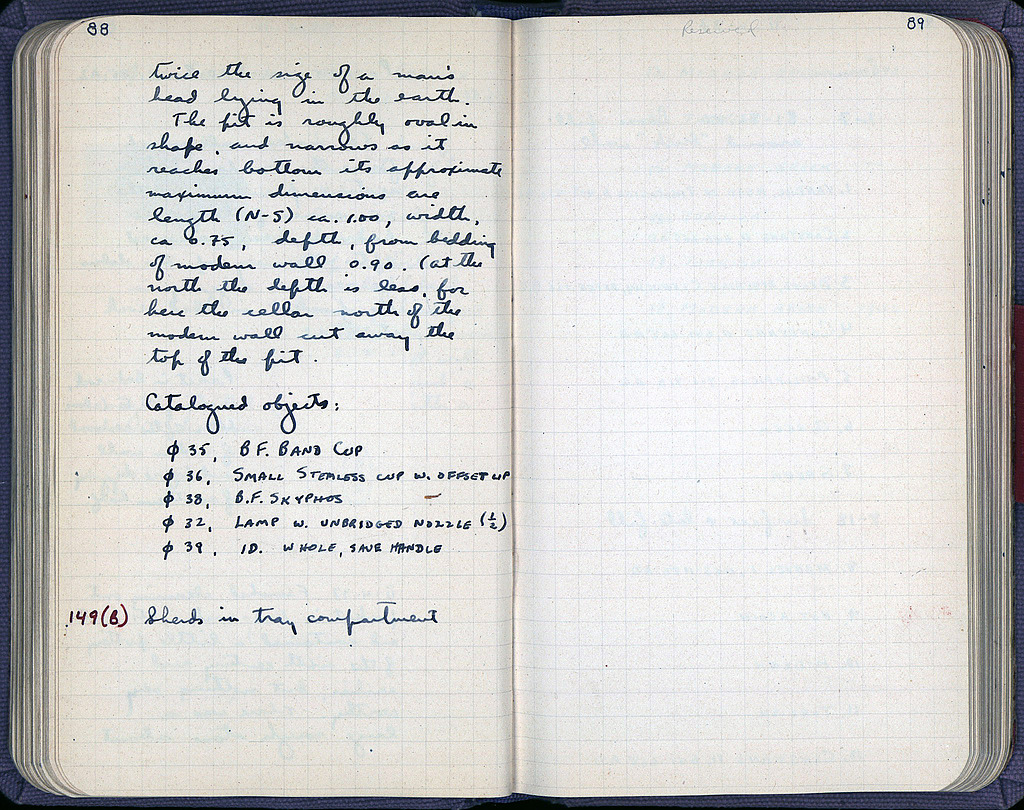 88
twice the size of a man's
head lying in the earth.
The pit is roughly oval in
shape, and narrows as it
reaches bottom its approximate
maximum dimensions are
length (N-S) ca. 1.00, width,
ca 0.75, depth, from bedding
of modern wall 0.90. (at the
north the depth is less, for
here the cellar north of the
modern wall cut away the
top of the pit.
Catalogued objects:
φ 35, B F. BAND CUP
φ 36, SMALL STEMLESS CUP W. OFFSET LIP
φ 38, B.F. SKYPHOS
φ 32, LAMP W. UNBRIDGED NOZZLE (½)
φ 39, ID. WHOLE, SAVE HANDLE
149(B) Sherds in tray compartment
Reserved
89